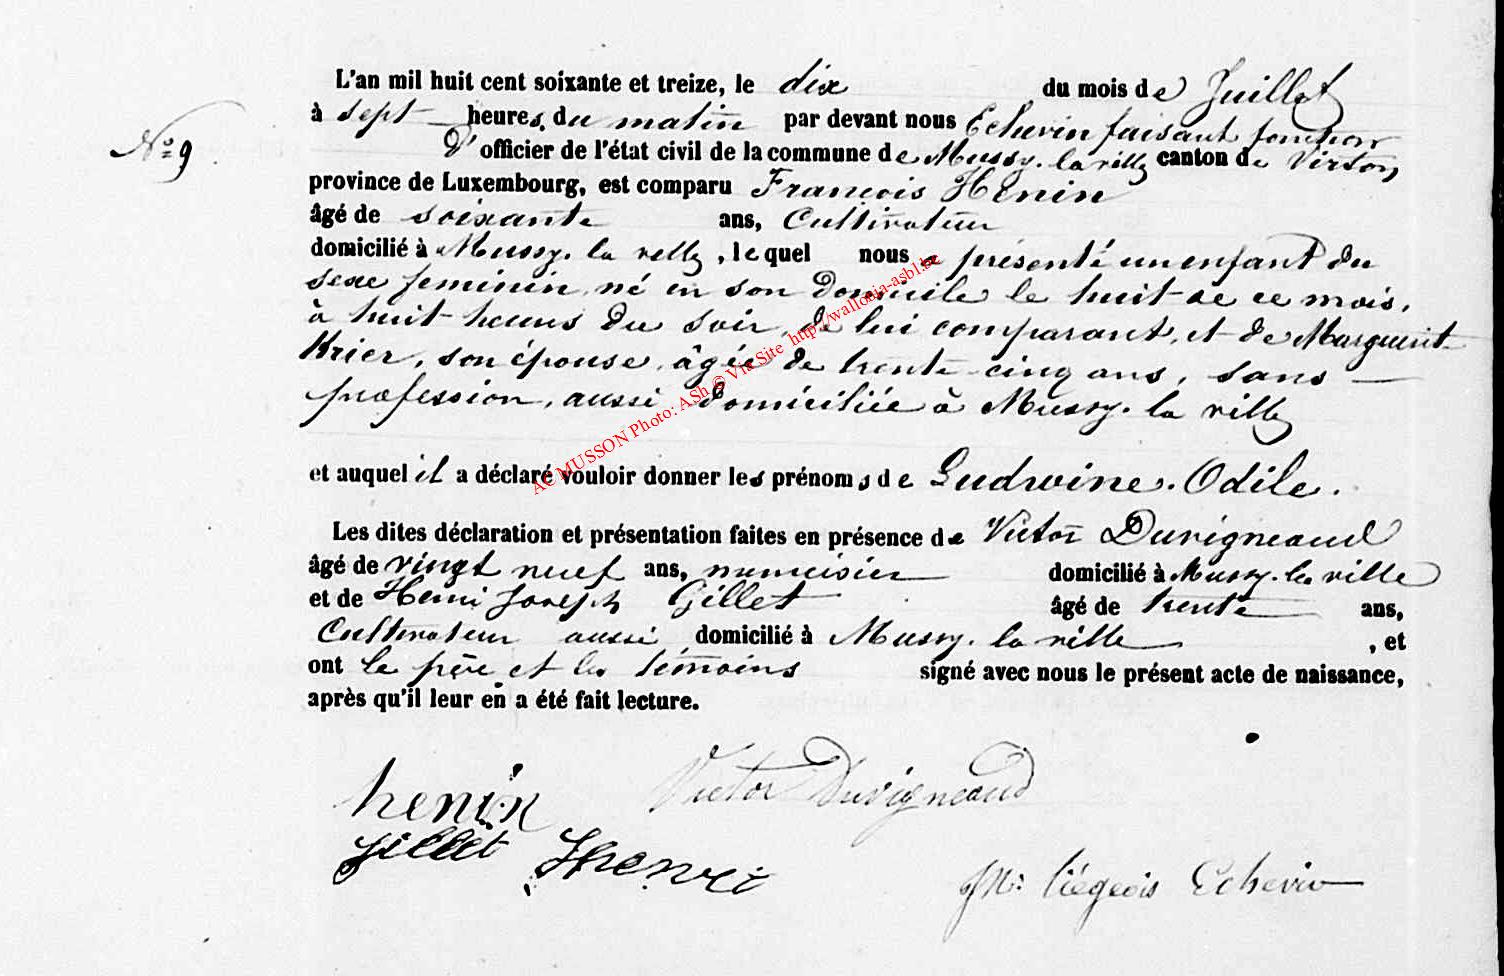 L'an mil huit cent soixante et treize, le dix du mois de Juillet
à sept heures du matin par devant nous Echevin faisant fonction
N° 9
d'officier de l'état civil de la commune de Mussy-la-ville canton de Virton,
province de Luxembourg, est comparu François Henin
âgé de soixante ans, Cultivateur
domicilié à Mussy-la-ville, lequel nous a présenté un enfant du
sexe feminin, né en son domicile le huit de ce mois,
à huit heures du soir, de lui comparant, et de Marguerite
Krier, son épouse, âgée de trente-cinq ans, sans
profession, aussi domiciliée à Mussy-la-ville
et auquel il a déclaré vouloir donner les prénoms de Ludwine-Odile.
Les dites déclaration et présentation faites en présence de Victor Duvigneaud
âgé de vingt neuf ans, domicilié à Mussy-la-ville
et de Henri Joseph Gillet âgé de trente ans,
Cultivateur aussi domicilié à Mussy-la-ville, et
ont le père et les témoins signé avec nous le présent acte de naissance,
après qu'il leur en a été fait lecture.
AC MUSSON Photo: ASh © Via Site http://wallonia-asbl.be
henin Victor Duvigneaud
Gillet
Liégeois Echevin